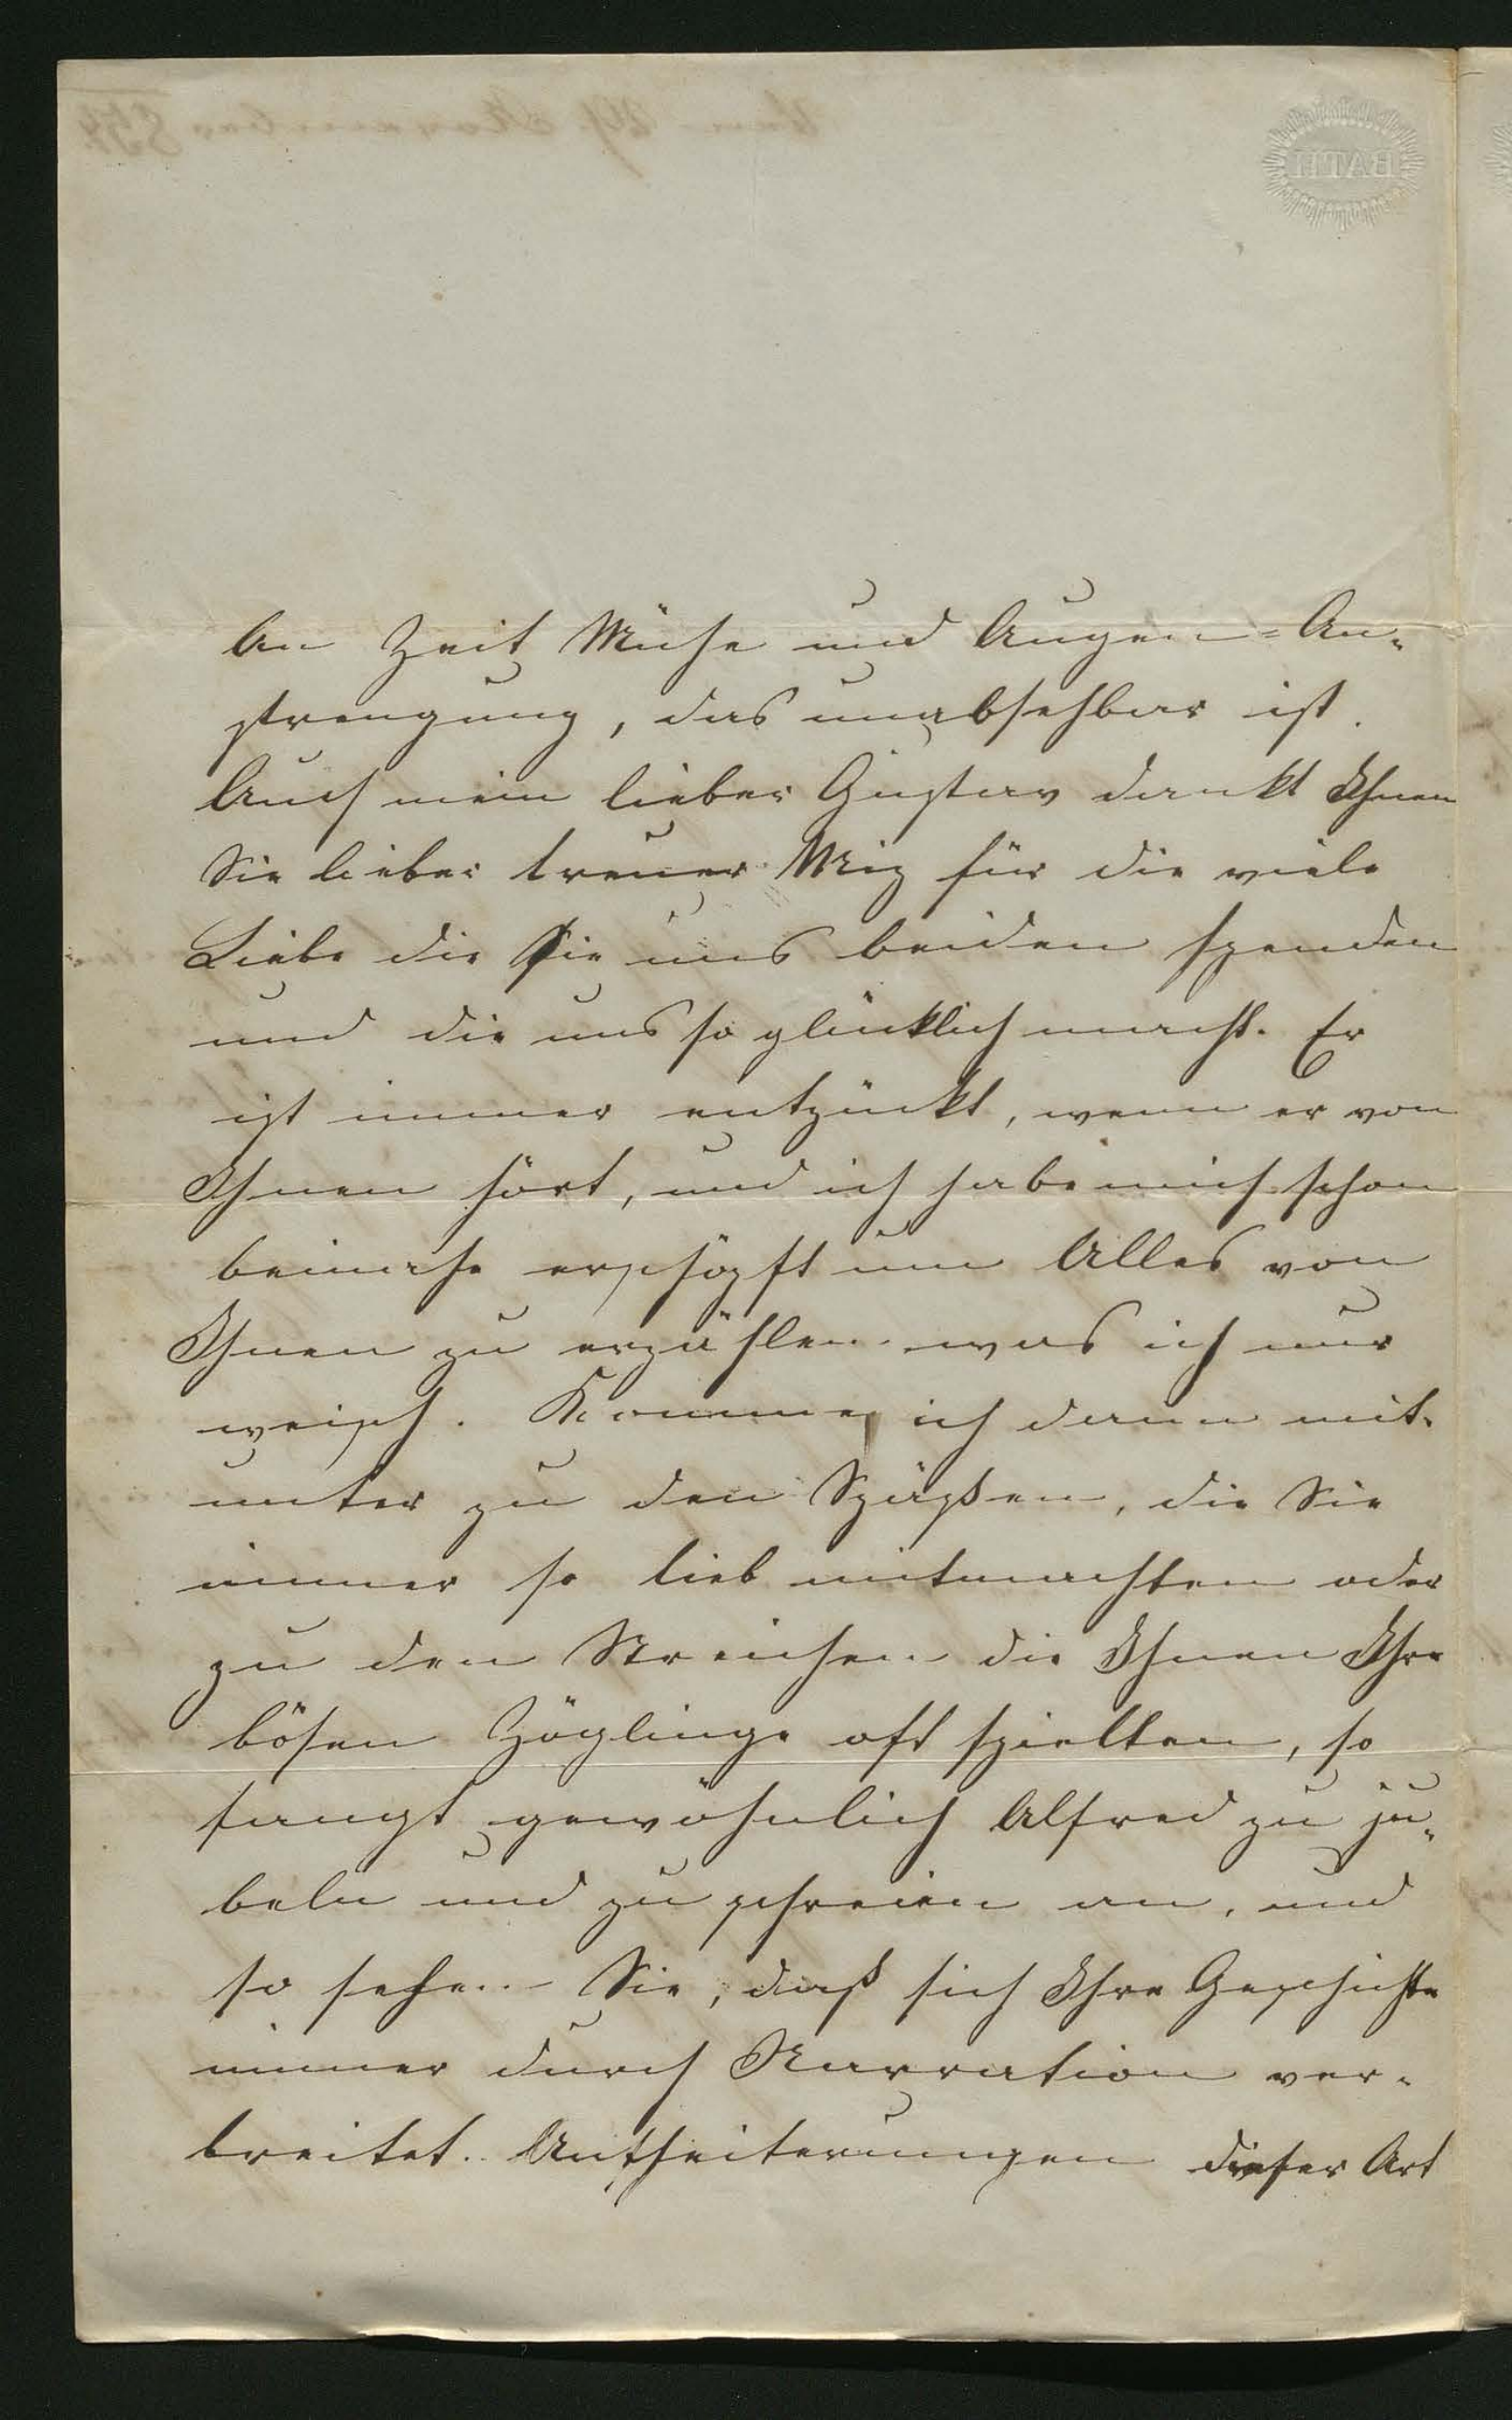 BATH
An Zeit Mühe und Augen=An-
strengung, das unabsehbar ist.
Auch mein lieber Gustav dankt Ihnen
Sie lieber treuer Mig für die viele
Liebe die Sie uns beiden spenden
und die uns so glücklich macht. Er
ist immer entzückt, wenn er von
Ihnen hört, und ich habe mich schon
beinahe erschöpft um Alles von
Ihnen zu erzählen was ich nur
weiß. Komme ich dann mit-
unter zu den Späßen, die Sie
immer so lieb mitmachten oder
zu den Streichen die Ihnen Ihre
bösen Zöglinge oft spielten, so
fangt gewöhnlich Alfred zu ju-
beln und zu schreien an, und
so sehen Sie, daß sich Ihre Geschichte
immer durch Narration ver-
breitet. Aufheiterungen dieser Art